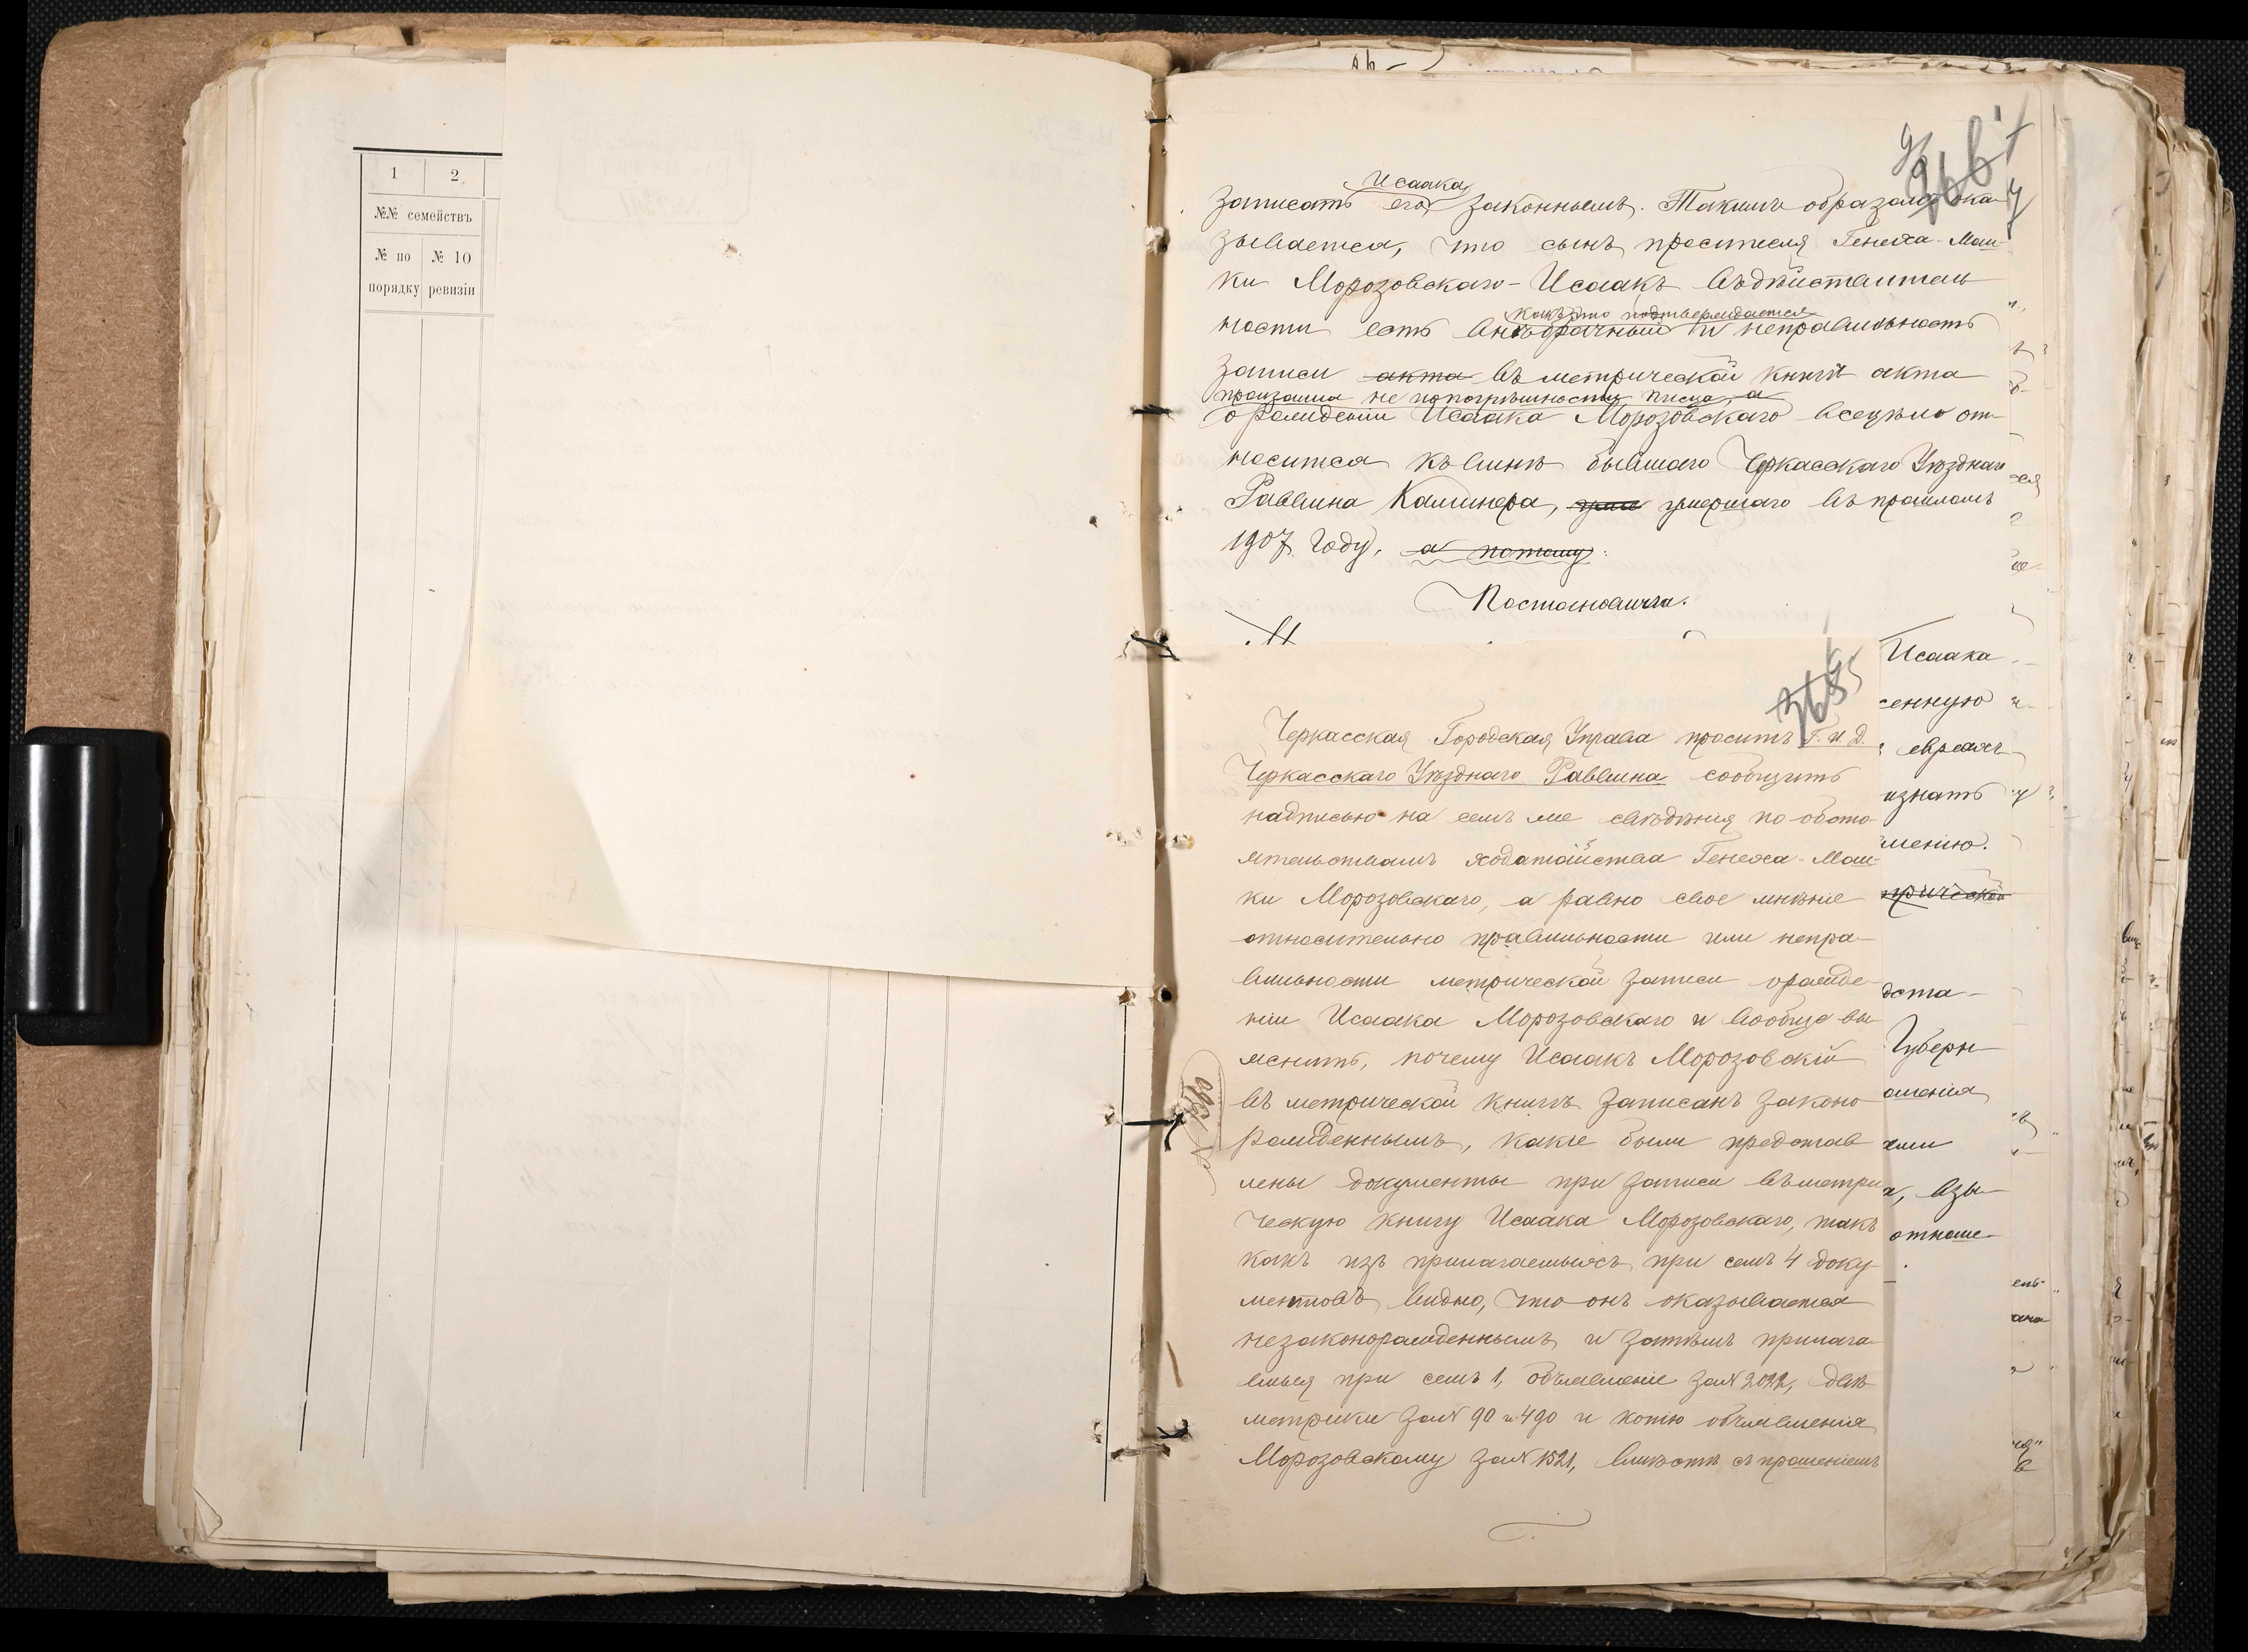 1 2
№№ семействъ
№ по № 10
порядку ревизіи
Исаака
записать его законнымъ. Такимъ образомъ ока-
зывается, что сынъ просителя Генеха-Маш-
ки Морозовскаго-Исаакъ въ дѣйствитель
какъ это подтверждается
ности есть внѣбрачный и неправильность
записи акта въ метрической книгѣ акта
произошла не по погрѣшности писца, а
о рожденіи Исаака Морозовскаго всецѣло от-
носится къ винѣ бывшаго Черкасскаго Уѣзднаго
Раввина Каминера, умершаго въ прошломъ
1907 году, а потому:
Постановила:
365
Черкасская Городская Управа проситъ Г. И. Д.
Черкасскаго Уѣзднаго Раввина сообщить
надписью на семъ же свѣдѣнія по обсто-
ятельствамъ ходатайства Генеха-Маш-
ки Морозовскаго, а равно свое мнѣніе
относительно правильности или непра-
вильности метрической записи о рожде-
ніи Исаака Морозовскаго и вообще вы-
яснить, почему Исаакъ Морозовскій
въ метрической книгѣ записанъ законо-
рожденнымъ, какіе были представ
лены документы при записи въ метри
ческую книгу Исаака Морозовскаго, такъ
какъ изъ прилагаемыхъ при семъ 4 доку-
ментовъ видно, что онъ оказывается
незаконорожденнымъ и затѣмъ прилага-
емыя при семъ 1, объявленіе за № 2022, двѣ
метрики за № 90 и 490 и копію объявленія
Морозовскому за № 1521, вмѣстѣ съ прошеніемъ
Исаака
сенную
евреяхъ
изнать
шенію.
трической
дста-
Губерн-
ошенія
ими
а, взы-
отноше-